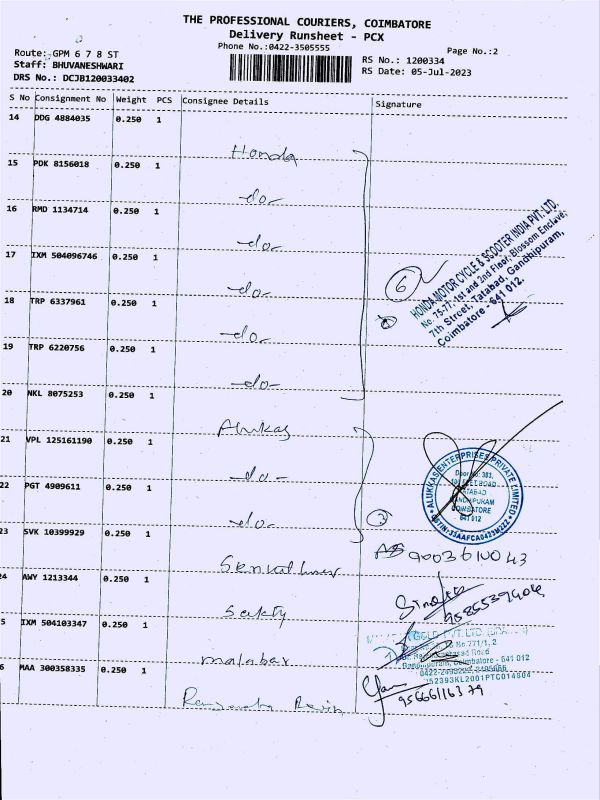 THE PROFESSIONAL COURIERS, COIMBATORE
Delivery Runsheet - PCX
Phone No.:0422-3505555
Page No.:2
Route: GPM 6 7 8 ST
Staff: BHUVANESHWARI
DRS No.: DCJB120033402
RS No.: 1200334
RS Date: 05-Jul-2023
S No Consignment No Weight PCS Consignee Details Signature
14 DDG 4884035 0.250 1
Honda
15 PDK 8156018 0.250 1
-do-
16 RMD 1134714 0.250 1
-do-
17 IXM 504096746 0.250 1
-do-
18 TRP 6337961 0.250 1
-do-
19 TRP 6220756 0.250 1
-do-
20 NKL 8075253 0.250 1
Alukas
21 VPL 125161190 0.250 1
-do-
22 PGT 4909611 0.250 1
-do-
23 SVK 10399929 0.250 1
24 AWY 1213344 0.250 1
Safety
5 IXM 504103347 0.250 1
malabar
6 MAA 300358335 0.250 1
6
HONDA MOTOR CYCLE & SCOOTER INDIA PVT. LTD.
No. 75-77, 1st and 2nd Floor, Blossom Enclave,
7th Street, Tatabad, Gandhipuram,
Coimbatore - 641 012.
ALUKKAS ENTERPRISES PRIVATE LIMITED
Door No: 383,
TATABAD
GANDHIPURAM
COIMBATORE
641 012
3
GOLD PVT. LTD.
No.771/1, 2
Road
Coimbatore - 641 012
9566611637 9